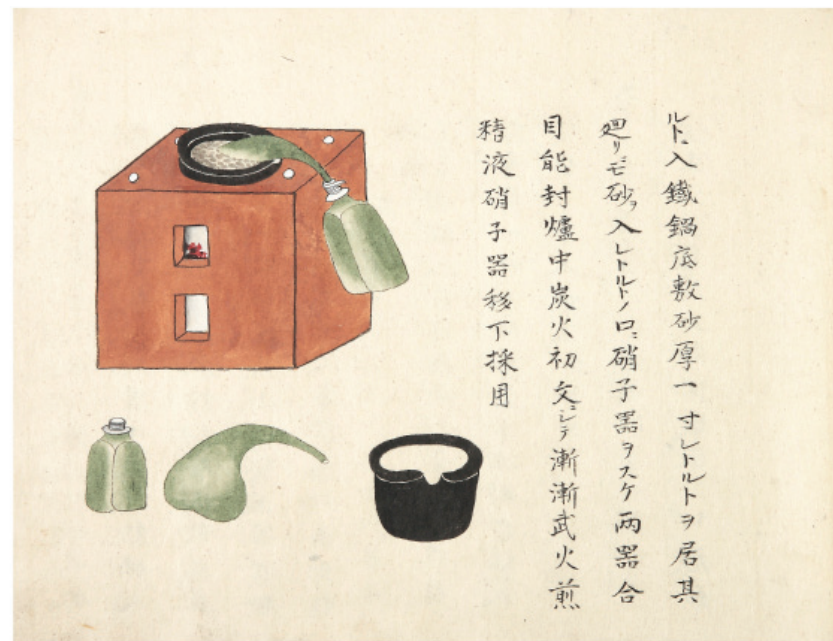 ルト入鐵鍋底敷砂厚一寸レトルトヲ居其
廻リモ砂ヲ入レトルトノ口ニ硝子器ヲスケ両器合
目能封爐中炭火初文ニシテ漸漸武火煎
精液硝子器移下採用